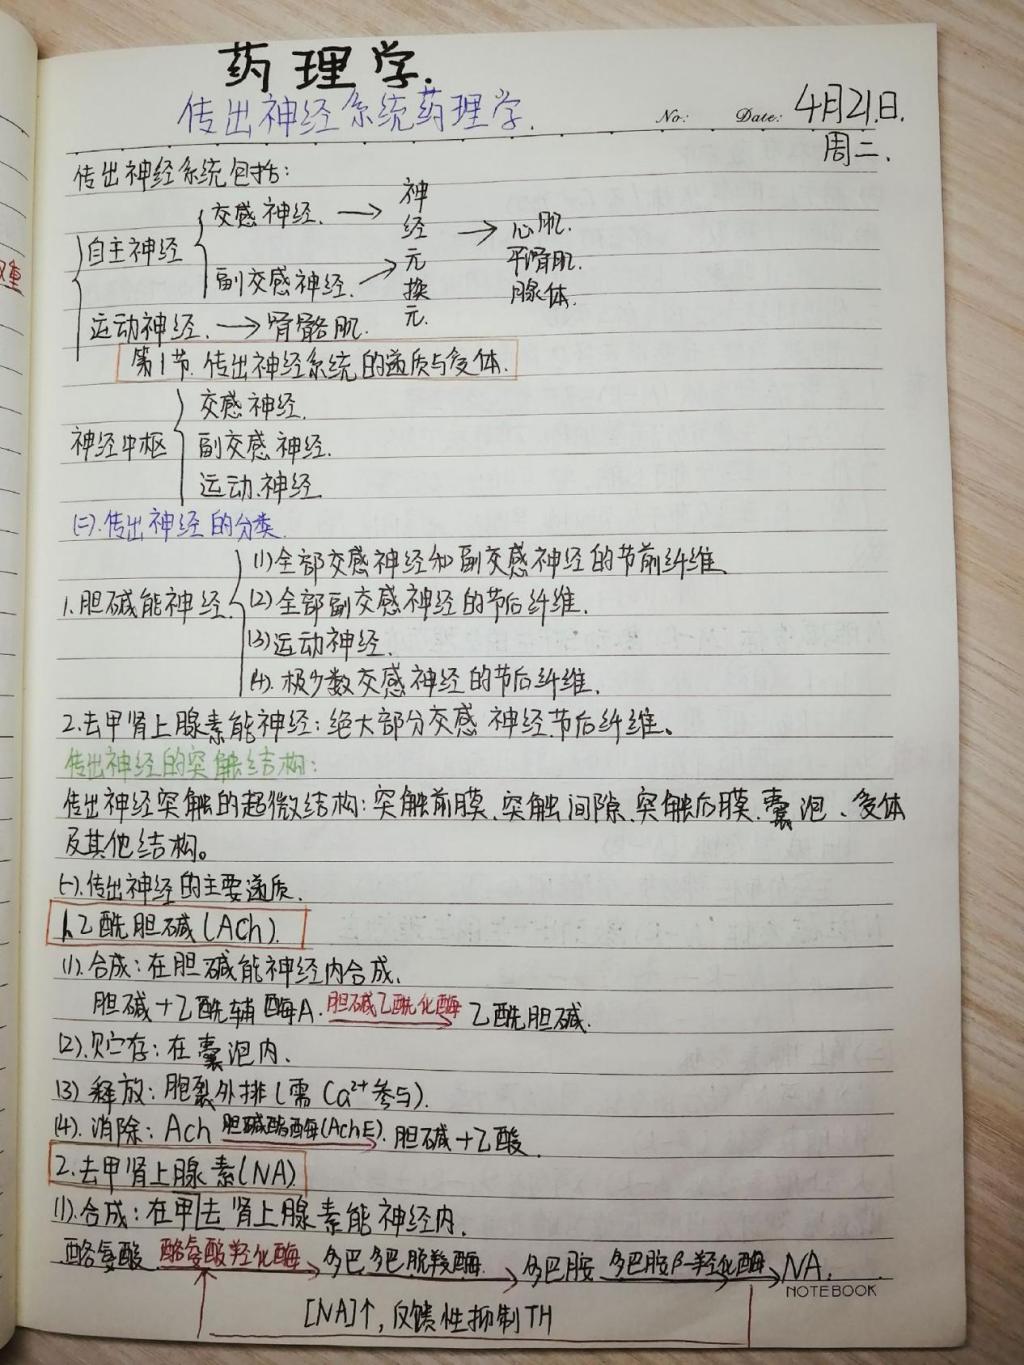 药理学.
传出神经系统药理学.
No:
Date: 4月21.日.
周二.
传出神经系统包括:
自主神经
交感神经. → 神经元换元. → 心肌. 平滑肌. 腺体.
副交感神经. →
运动神经. → 骨骼肌.
第1节.传出神经系统的递质与受体.
神经中枢
交感神经.
副交感神经.
运动神经
(二).传出神经的分类.
1.胆碱能神经
(1)全部交感神经和副交感神经的节前纤维
(2)全部副交感神经的节后纤维.
(3)运动神经.
(4).极少数交感神经的节后纤维.
2.去甲肾上腺素能神经:绝大部分交感神经节后纤维。
传出神经的突触结构:
传出神经突触的超微结构:突触前膜、突触间隙、突触后膜、囊泡、受体
及其他结构。
(一).传出神经的主要递质.
1.乙酰胆碱(ACh).
(1).合成:在胆碱能神经内合成.
胆碱+乙酰辅酶A. 胆碱乙酰化酶→ 乙酰胆碱.
(2).贮存:在囊泡内.
(3)释放:胞裂外排(需Ca²⁺参与).
(4).消除:Ach 胆碱酯酶(AchE)→ 胆碱+乙酸.
2.去甲肾上腺素(NA)
(1).合成:在甲去肾上腺素能神经内.
酪氨酸 酪氨酸羟化酶→ 多巴 多巴脱羧酶→ 多巴胺 多巴胺β-羟化酶→ NA.
NOTEBOOK
[NA]↑,反馈性抑制TH